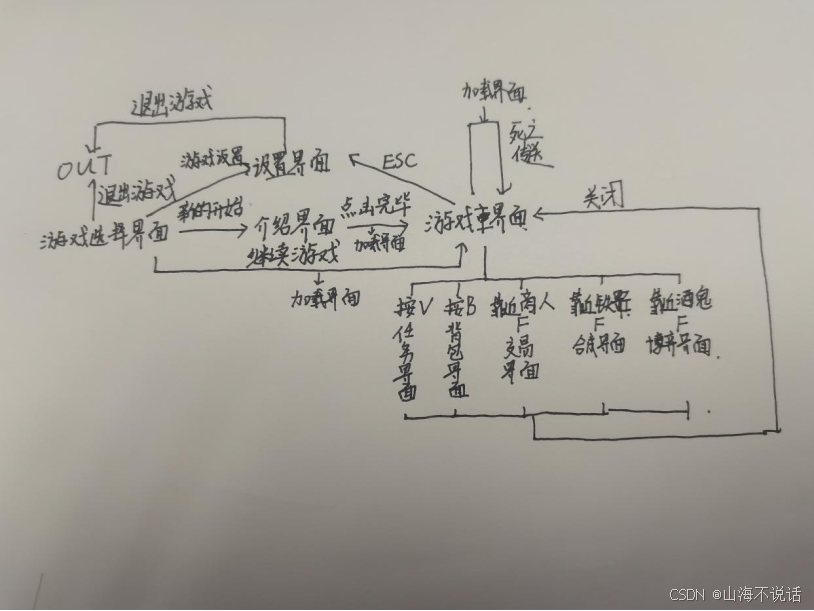 退出游戏
加载界面
OUT
游戏设置
设置界面
ESC
死亡
传送
退出游戏
新的开始
关闭
游戏选择界面
介绍界面
点击完毕
游戏主界面
继续游戏
加载界面
加载界面
按V
任务界面
按B
背包界面
靠近商人
F
交易
界面
靠近铁匠
F
合成界面
靠近酒鬼
F
博弈界面
CSDN @山海不说话